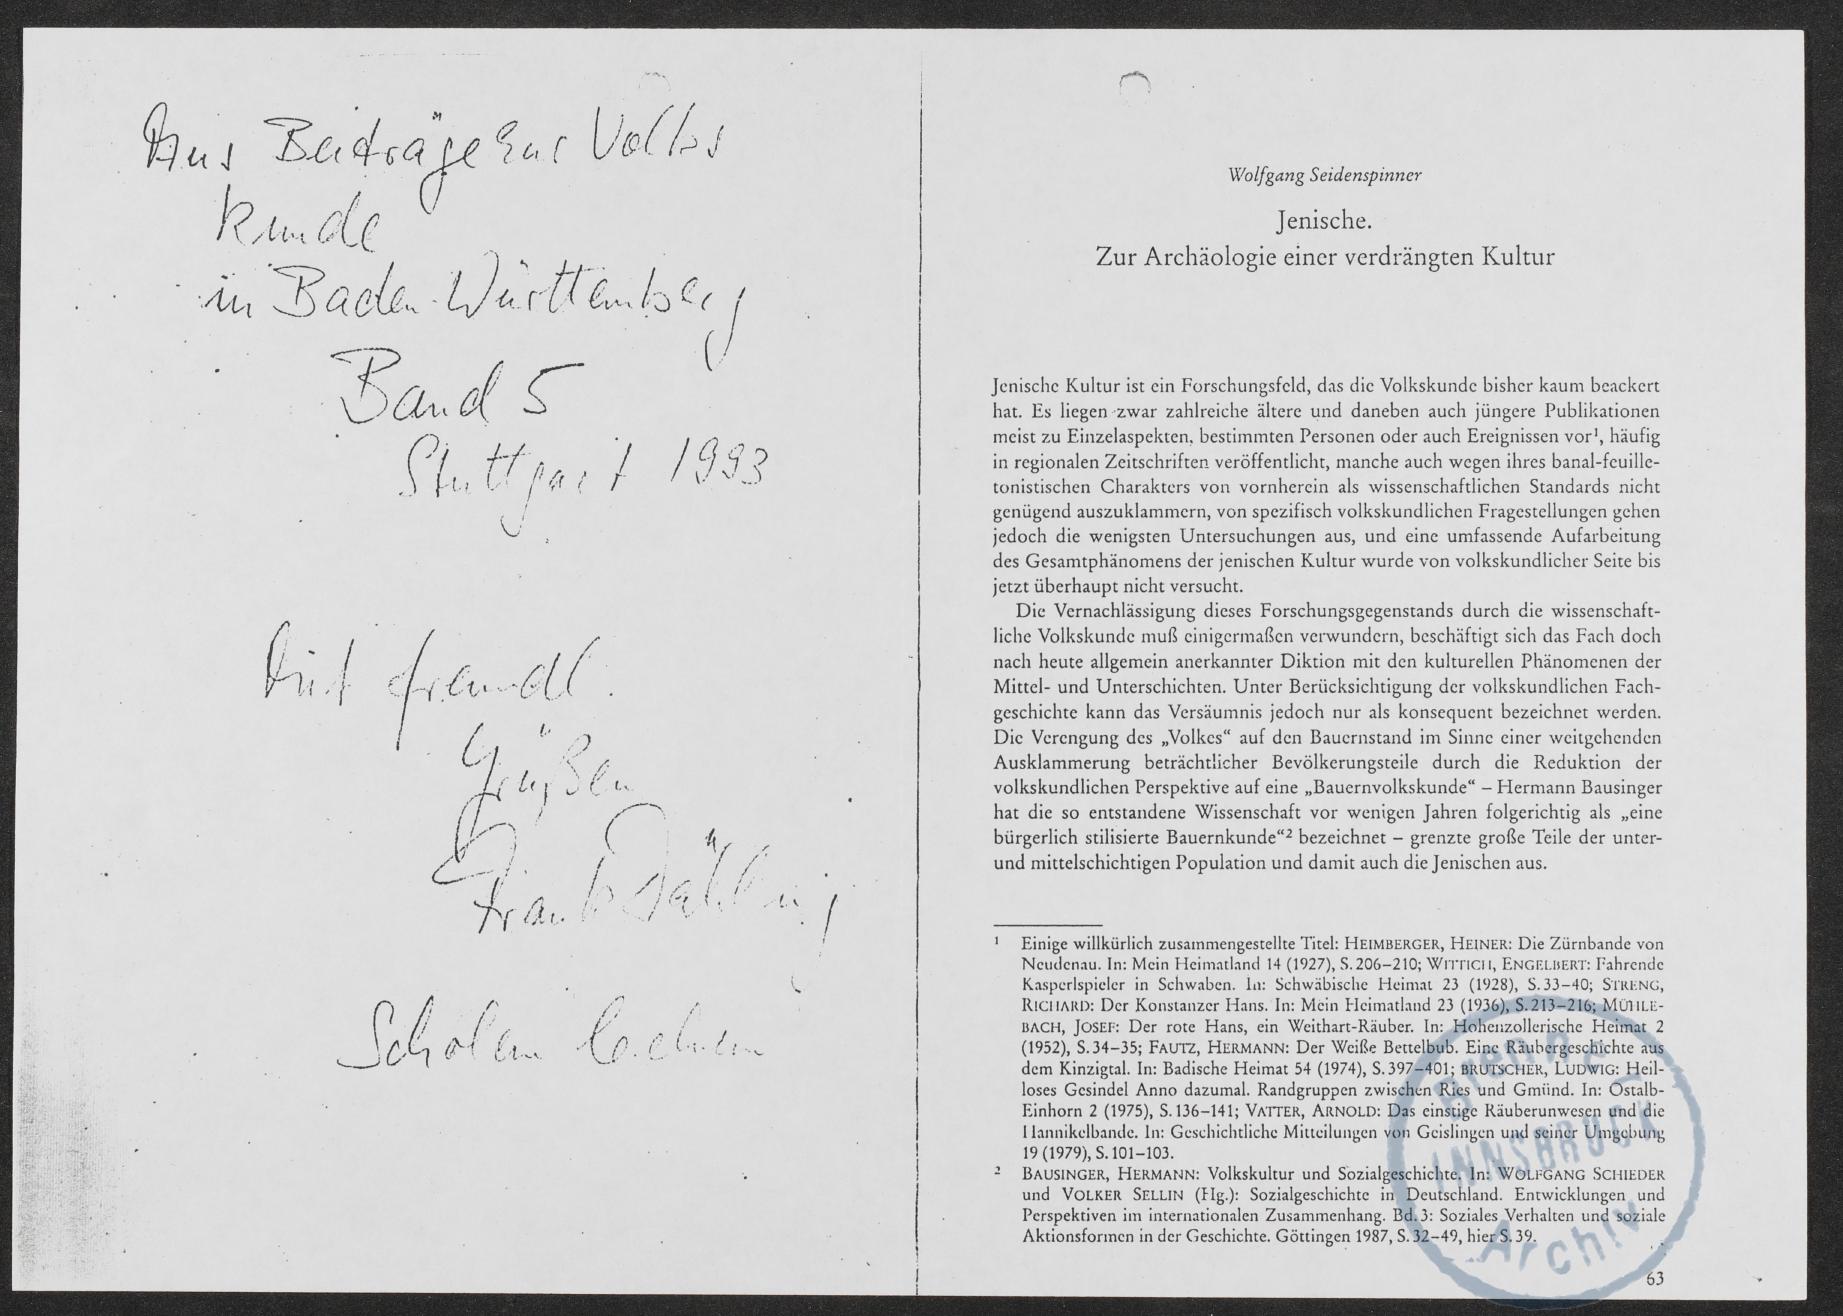 Aus Beiträge zur Volks
kunde
in Baden-Württemberg
Band 5
Stuttgart 1993
Mit freundl.
Grüßen
Scholem
Wolfgang Seidenspinner
Jenische.
Zur Archäologie einer verdrängten Kultur
Jenische Kultur ist ein Forschungsfeld, das die Volkskunde bisher kaum beackert
hat. Es liegen zwar zahlreiche ältere und daneben auch jüngere Publikationen
meist zu Einzelaspekten, bestimmten Personen oder auch Ereignissen vor¹, häufig
in regionalen Zeitschriften veröffentlicht, manche auch wegen ihres banal-feuille-
tonistischen Charakters von vornherein als wissenschaftlichen Standards nicht
genügend auszuklammern, von spezifisch volkskundlichen Fragestellungen gehen
jedoch die wenigsten Untersuchungen aus, und eine umfassende Aufarbeitung
des Gesamtphänomens der jenischen Kultur wurde von volkskundlicher Seite bis
jetzt überhaupt nicht versucht.
Die Vernachlässigung dieses Forschungsgegenstands durch die wissenschaft-
liche Volkskunde muß einigermaßen verwundern, beschäftigt sich das Fach doch
nach heute allgemein anerkannter Diktion mit den kulturellen Phänomenen der
Mittel- und Unterschichten. Unter Berücksichtigung der volkskundlichen Fach-
geschichte kann das Versäumnis jedoch nur als konsequent bezeichnet werden.
Die Verengung des „Volkes“ auf den Bauernstand im Sinne einer weitgehenden
Ausklammerung beträchtlicher Bevölkerungsteile durch die Reduktion der
volkskundlichen Perspektive auf eine „Bauernvolkskunde“ – Hermann Bausinger
hat die so entstandene Wissenschaft vor wenigen Jahren folgerichtig als „eine
bürgerlich stilisierte Bauernkunde“² bezeichnet – grenzte große Teile der unter-
und mittelschichtigen Population und damit auch die Jenischen aus.
¹ Einige willkürlich zusammengestellte Titel: HEIMBERGER, HEINER: Die Zürnbande von
Neudenau. In: Mein Heimatland 14 (1927), S. 206–210; WITTICH, ENGELBERT: Fahrende
Kasperlspieler in Schwaben. In: Schwäbische Heimat 23 (1928), S. 33–40; STRENG,
RICHARD: Der Konstanzer Hans. In: Mein Heimatland 23 (1936), S. 213–216; MÜHLE-
BACH, JOSEF: Der rote Hans, ein Weithart-Räuber. In: Hohenzollerische Heimat 2
(1952), S. 34–35; FAUTZ, HERMANN: Der Weiße Bettelbub. Eine Räubergeschichte aus
dem Kinzigtal. In: Badische Heimat 54 (1974), S. 397–401; BRUTSCHER, LUDWIG: Heil-
loses Gesindel Anno dazumal. Randgruppen zwischen Ries und Gmünd. In: Ostalb-
Einhorn 2 (1975), S. 136–141; VATTER, ARNOLD: Das einstige Räuberunwesen und die
Hannikelbande. In: Geschichtliche Mitteilungen von Geislingen und seiner Umgebung
19 (1979), S. 101–103.
² BAUSINGER, HERMANN: Volkskultur und Sozialgeschichte. In: WOLFGANG SCHIEDER
und VOLKER SELLIN (Hg.): Sozialgeschichte in Deutschland. Entwicklungen und
Perspektiven im internationalen Zusammenhang. Bd. 3: Soziales Verhalten und soziale
Aktionsformen in der Geschichte. Göttingen 1987, S. 32–49, hier S. 39.
Brenner
INNSBRUCK
Archiv
63